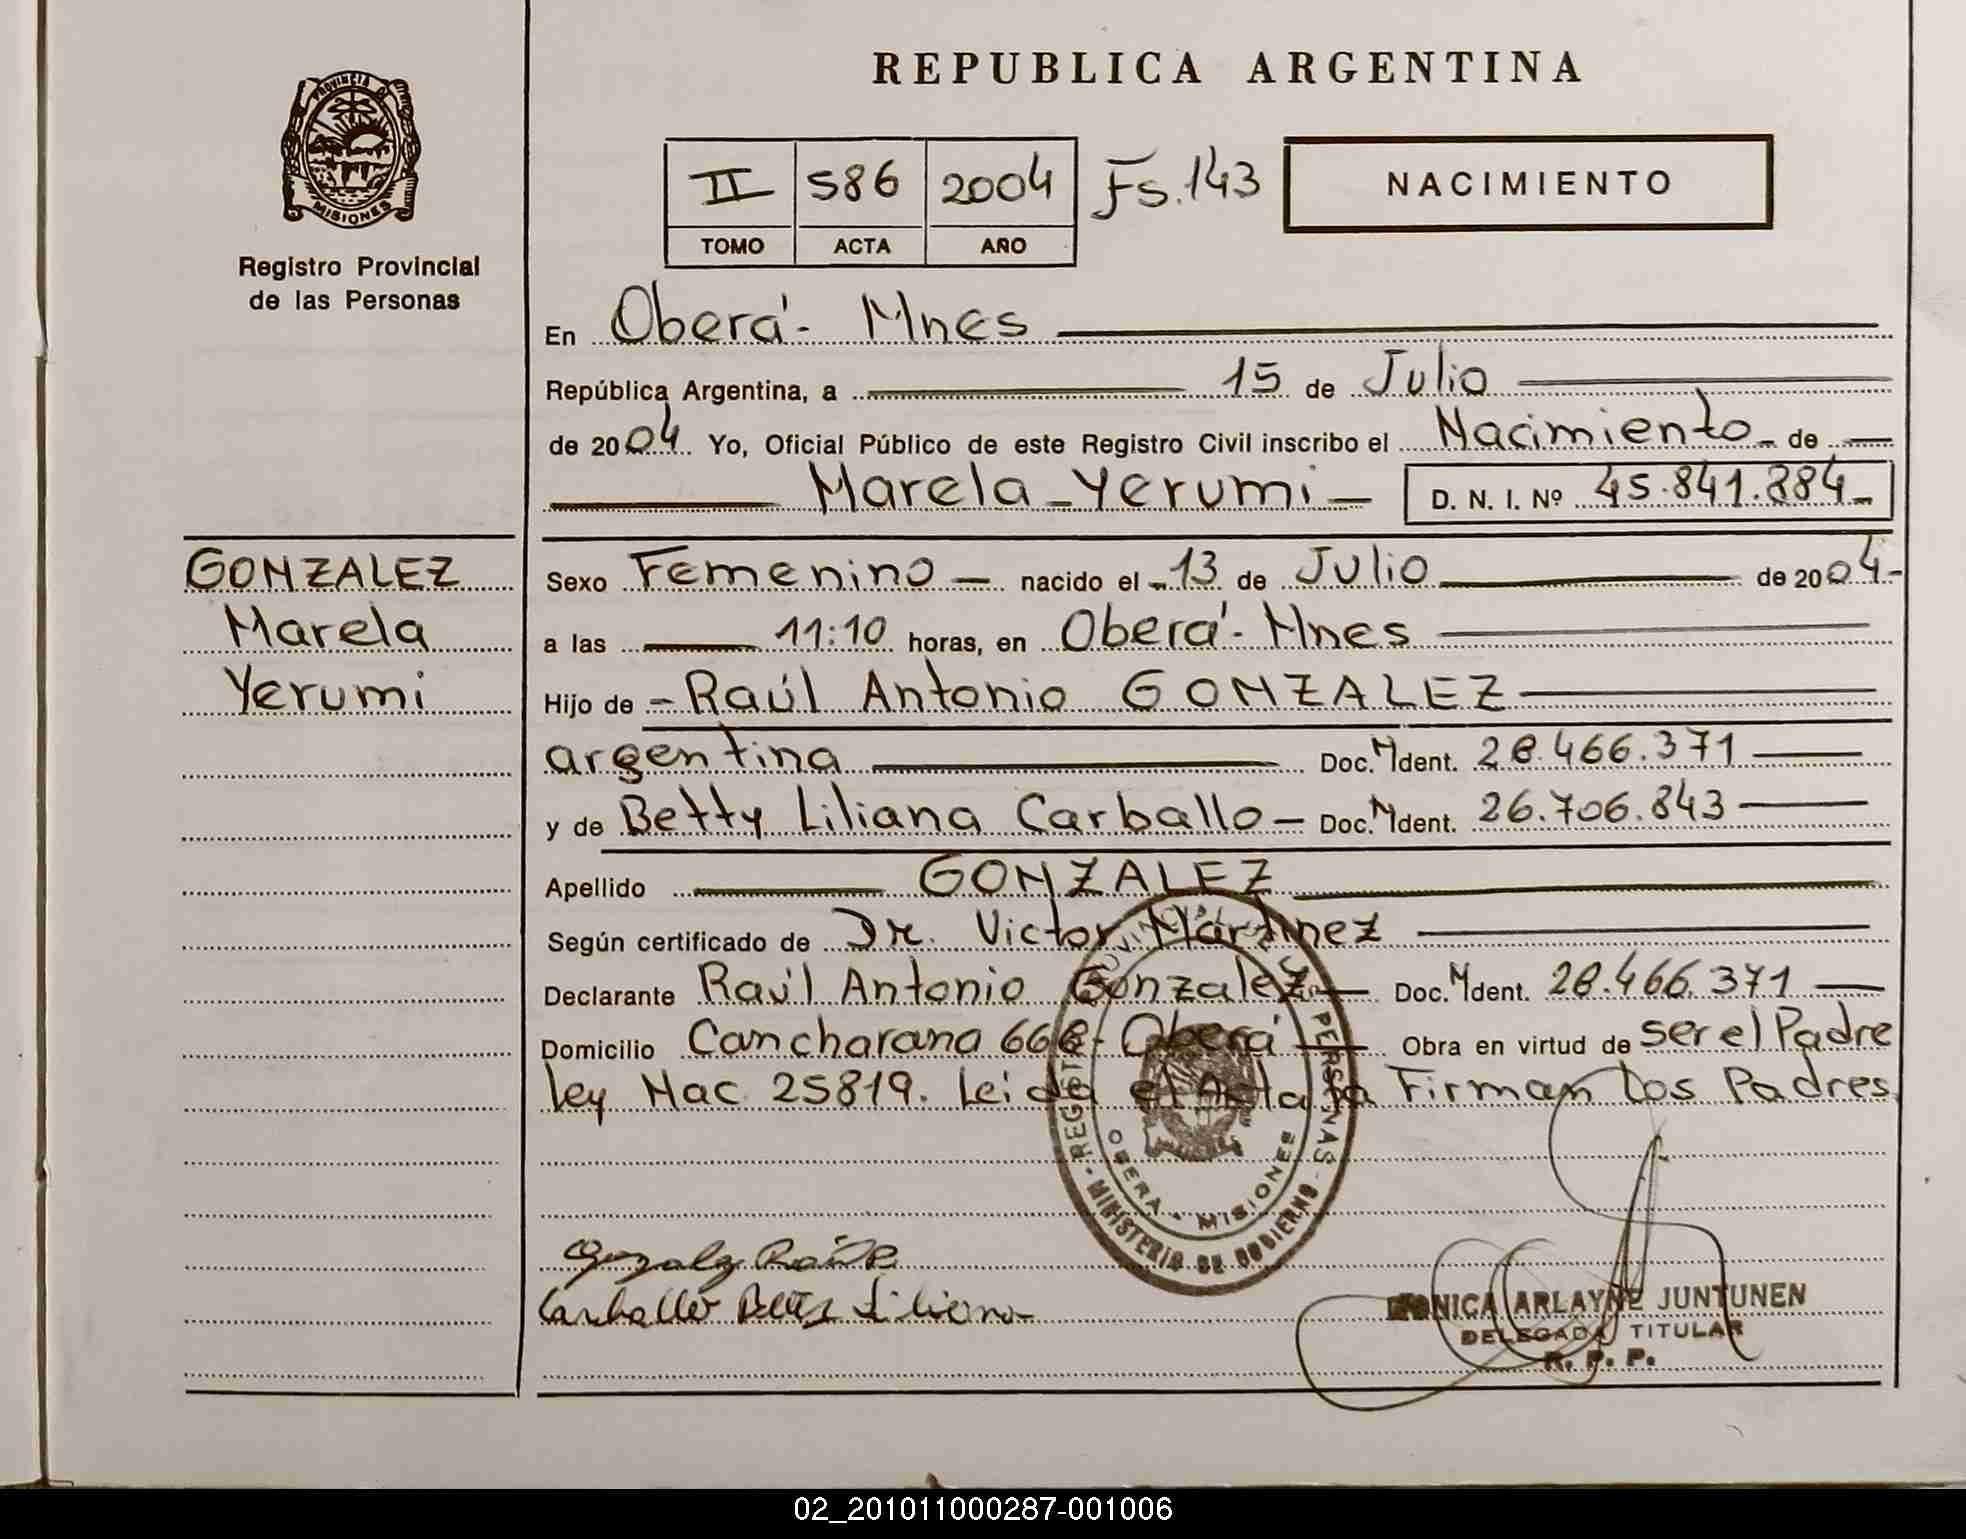 REPUBLICA ARGENTINA
PROVINCIA DE MISIONES
Registro Provincial
de las Personas
II 586 2004 Fs.143
TOMO ACTA AÑO
NACIMIENTO
En Oberá - Mnes
República Argentina, a 15 de Julio
de 2004 Yo, Oficial Público de este Registro Civil inscribo el Nacimiento - de
Marela - Yerumi - D. N. I. Nº 45.841.884 -
GONZALEZ
Marela
Yerumi
Sexo Femenino - nacido el - 13 de Julio de 2004 -
a las 11:10 horas, en Oberá - Mnes
Hijo de - Raúl Antonio GONZALEZ
argentina Doc. M Ident. 28.466.371
y de Betty Liliana Carballo - Doc. M Ident. 26.706.843
Apellido GONZALEZ
Según certificado de Dr. Victor Martinez
Declarante Raúl Antonio Gonzalez - Doc. M Ident. 28.466.371
Domicilio Cancharana 666 - Oberá Obra en virtud de ser el Padre
Ley Nac. 25819. Leida el Acta la Firman los Padres
REGISTRO PROVINCIAL DE LAS PERSONAS
OBERA - MISIONES
MINISTERIO DE GOBIERNO
Gonzalez Raúl
Carballo Betty Liliana
MONICA ARLAYNE JUNTUNEN
DELEGADA TITULAR
R. P. P.
02_201011000287-001006